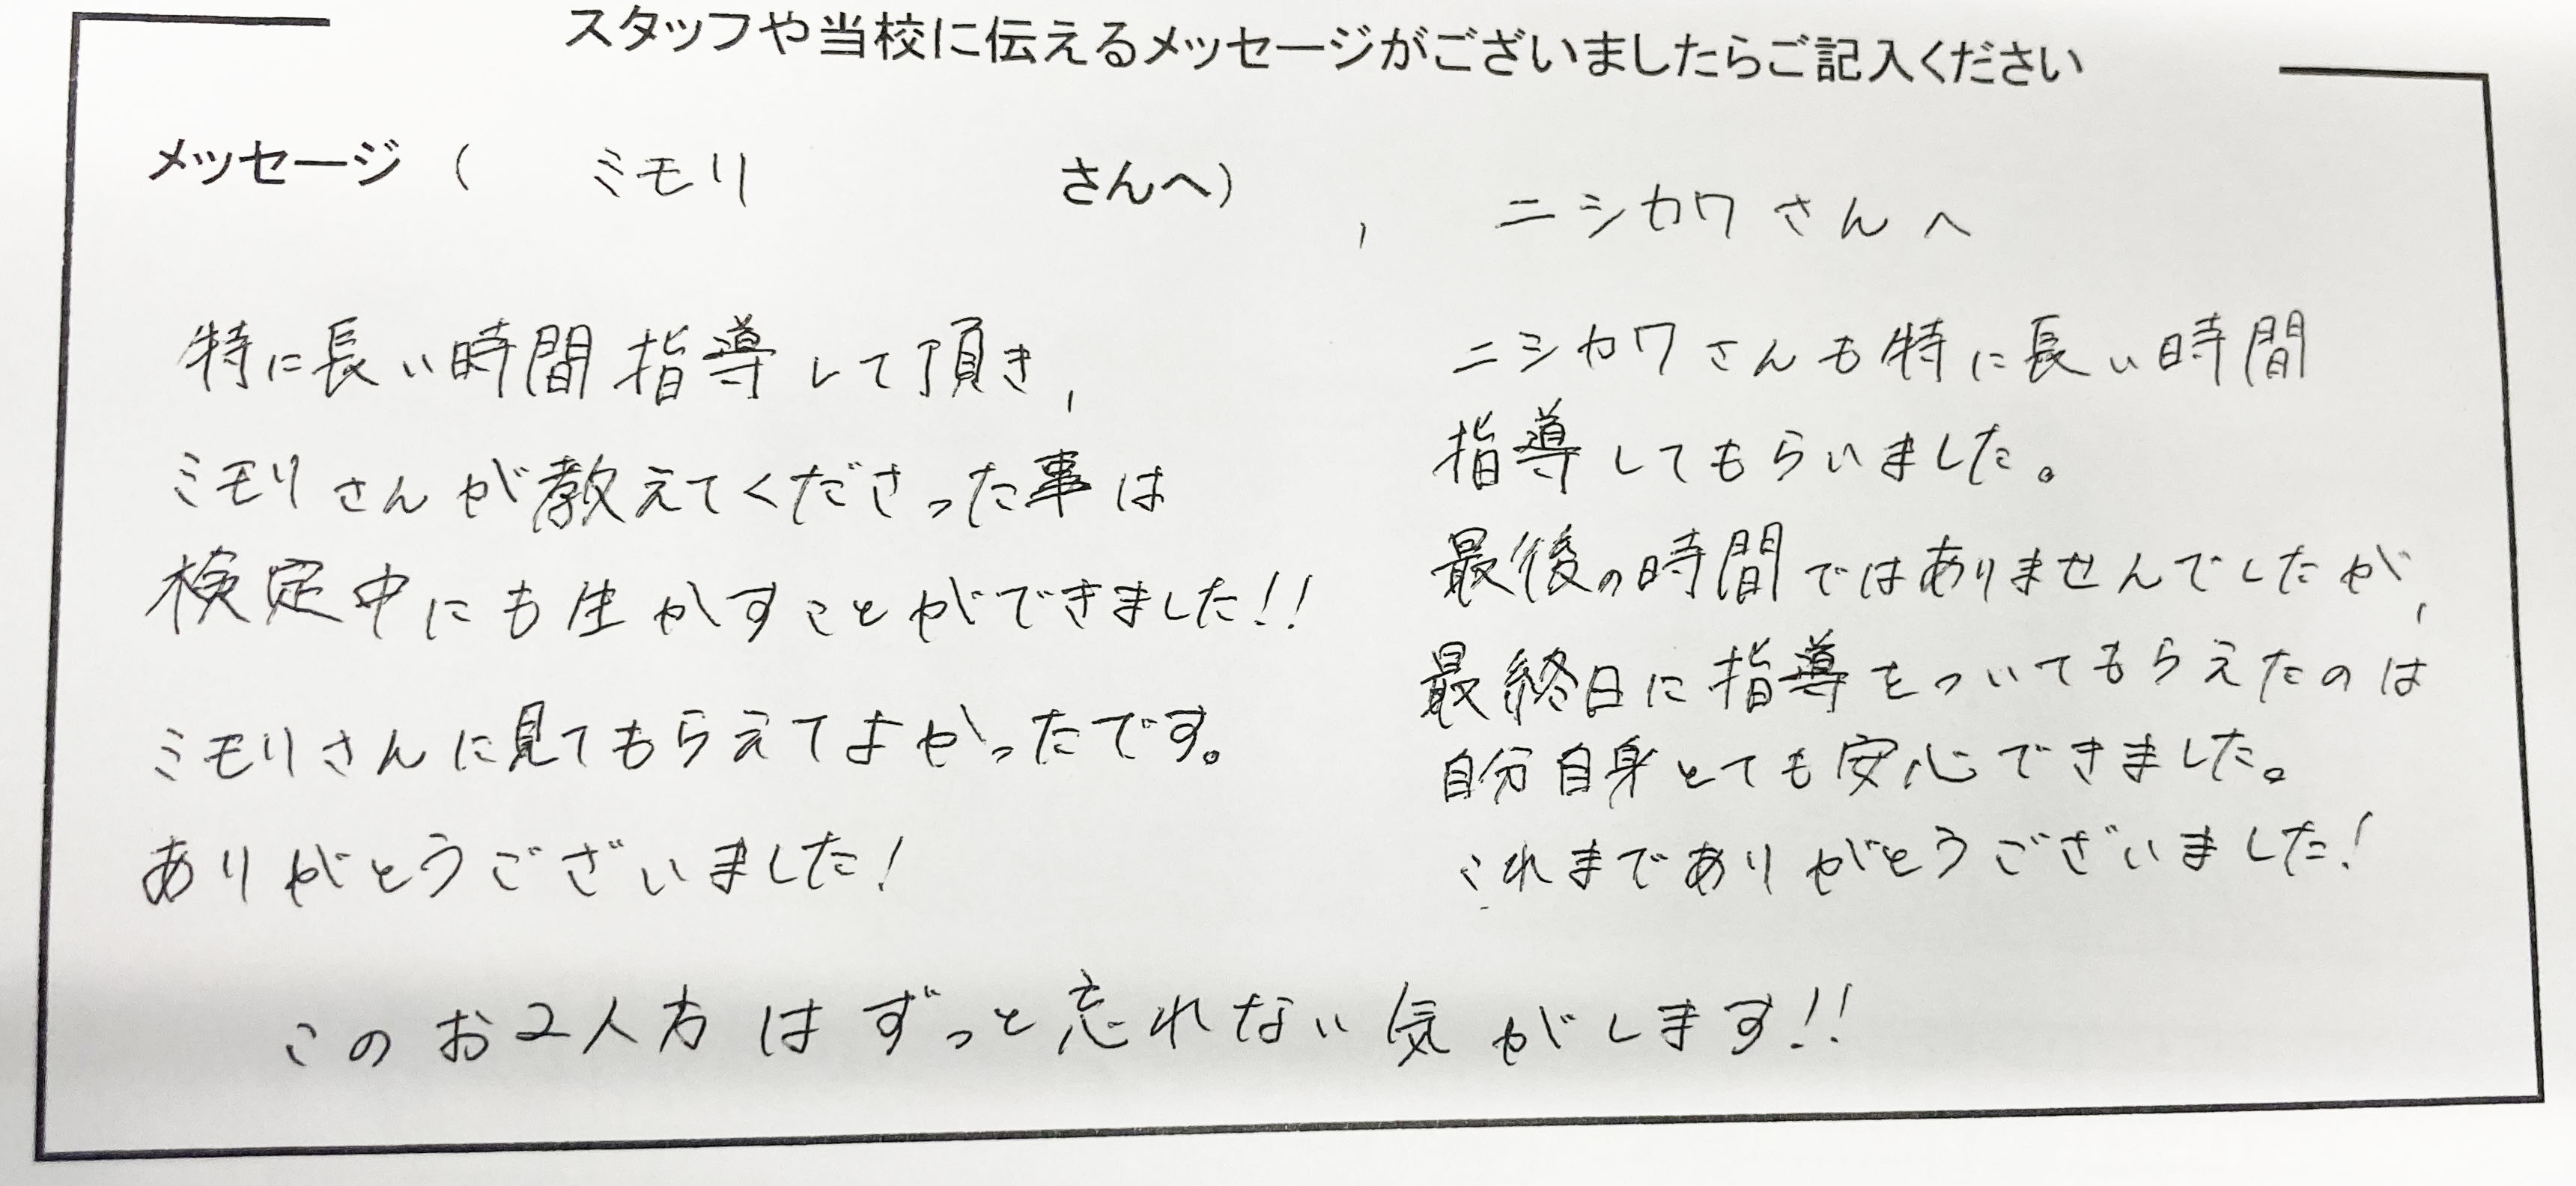 スタッフや当校に伝えるメッセージがございましたらご記入ください
メッセージ ( ミモリ さんへ) , ニシカワさんへ
特に長い時間指導して頂き,
ミモリさんが教えてくださった事は
検定中にも生かすことができました!!
ミモリさんに見てもらえてよかったです。
ありがとうございました!
ニシカワさんも特に長い時間
指導してもらいました。
最後の時間ではありませんでしたが,
最終日に指導をついてもらえたのは
自分自身とても安心できました。
これまでありがとうございました!
このお2人方はずっと忘れない気がします!!